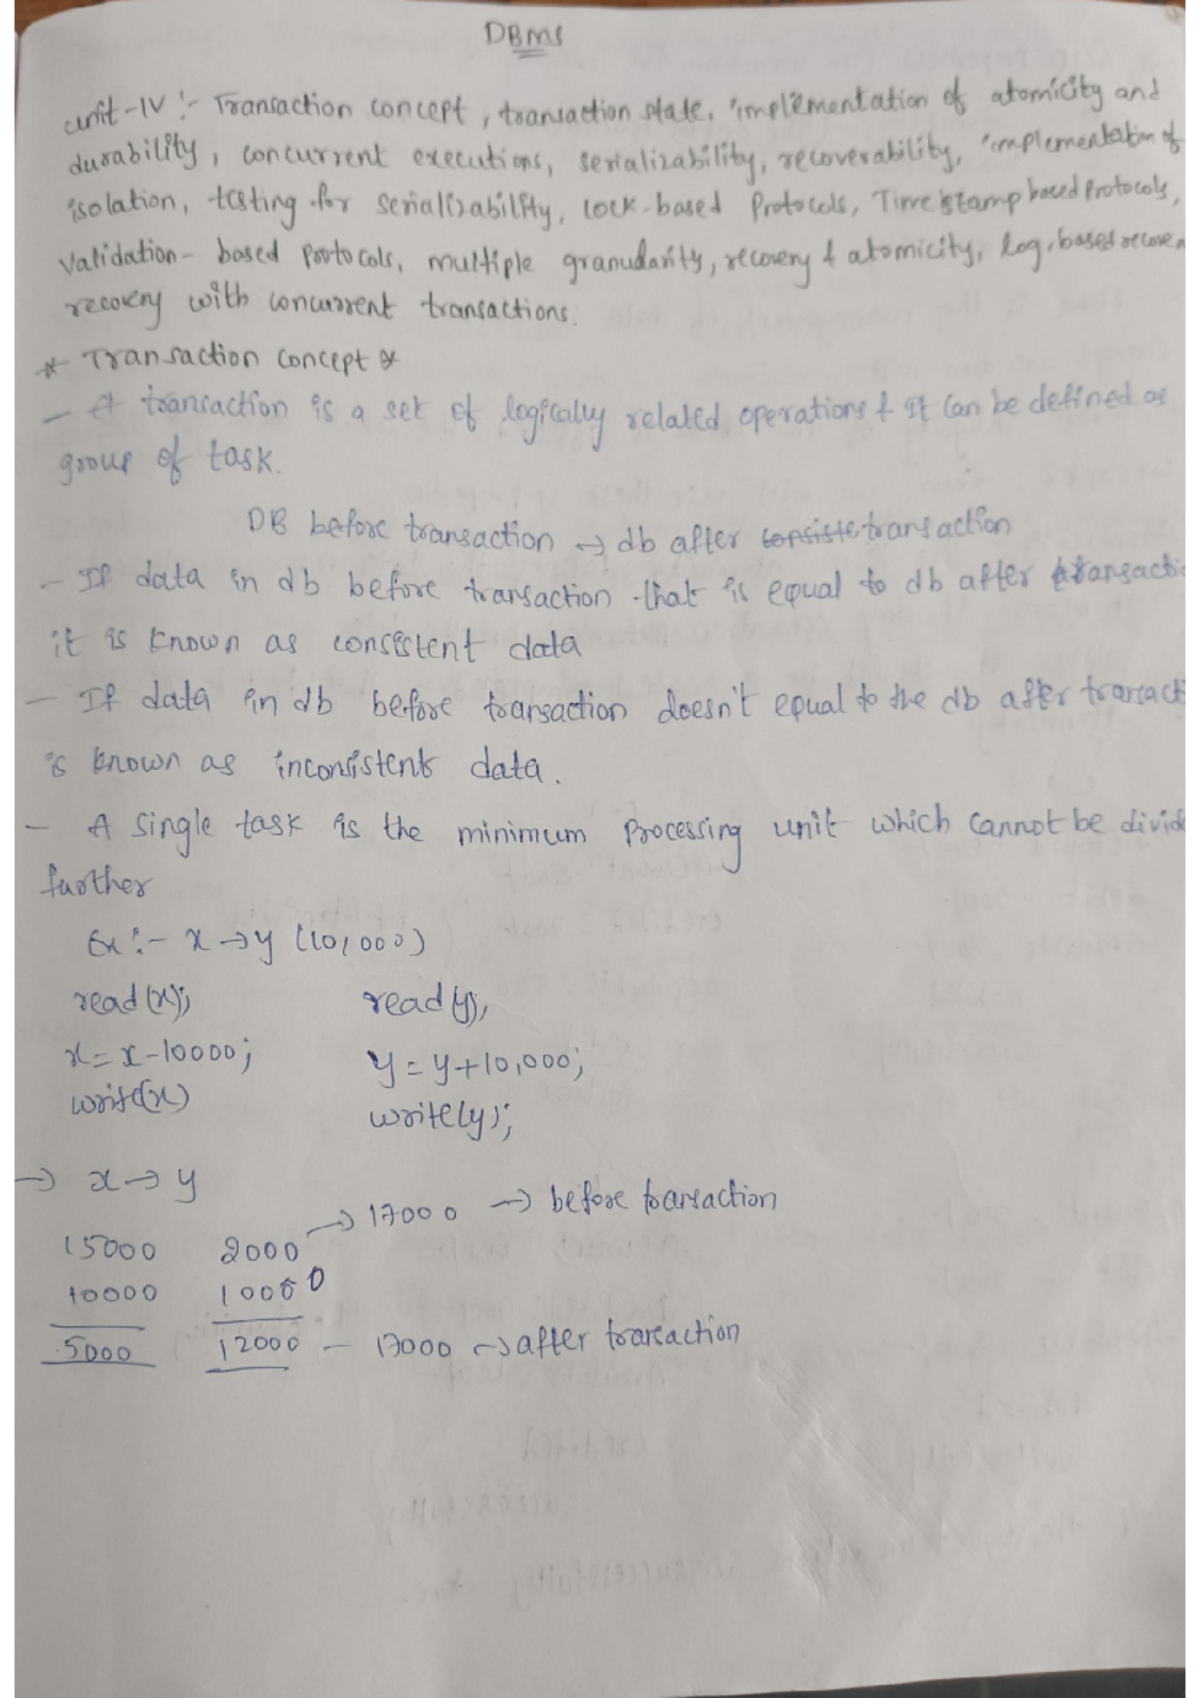 DBMS
unit-IV :- Transaction concept, transaction state, implementation of atomicity and
durability, concurrent executions, serializability, recoverability, implementation of
isolation, testing for serializability, lock-based Protocols, Timestamp based Protocols,
Validation- based Protocols, multiple granularity, recovery & atomicity, log, based recove
recovery with concurrent transactions.
* Transaction concept *
- A transaction is a set of logically related operations & it can be defined as
group of task.
DB before transaction → db after consiste transaction
- If data in db before transaction that is equal to db after transacti
it is known as consistent data
- If data in db before transaction doesn't equal to the db after transacti
is known as inconsistent data.
- A single task is the minimum Processing unit which cannot be divid
further
Ex :- x → y (10,000)
read(x); read(y);
x = x-10000; y = y+10,000;
write(x) write(y);
→ x → y
→ 17000 → before transaction
15000 2000
10000 10000
5000 12000 - 17000 → after transaction